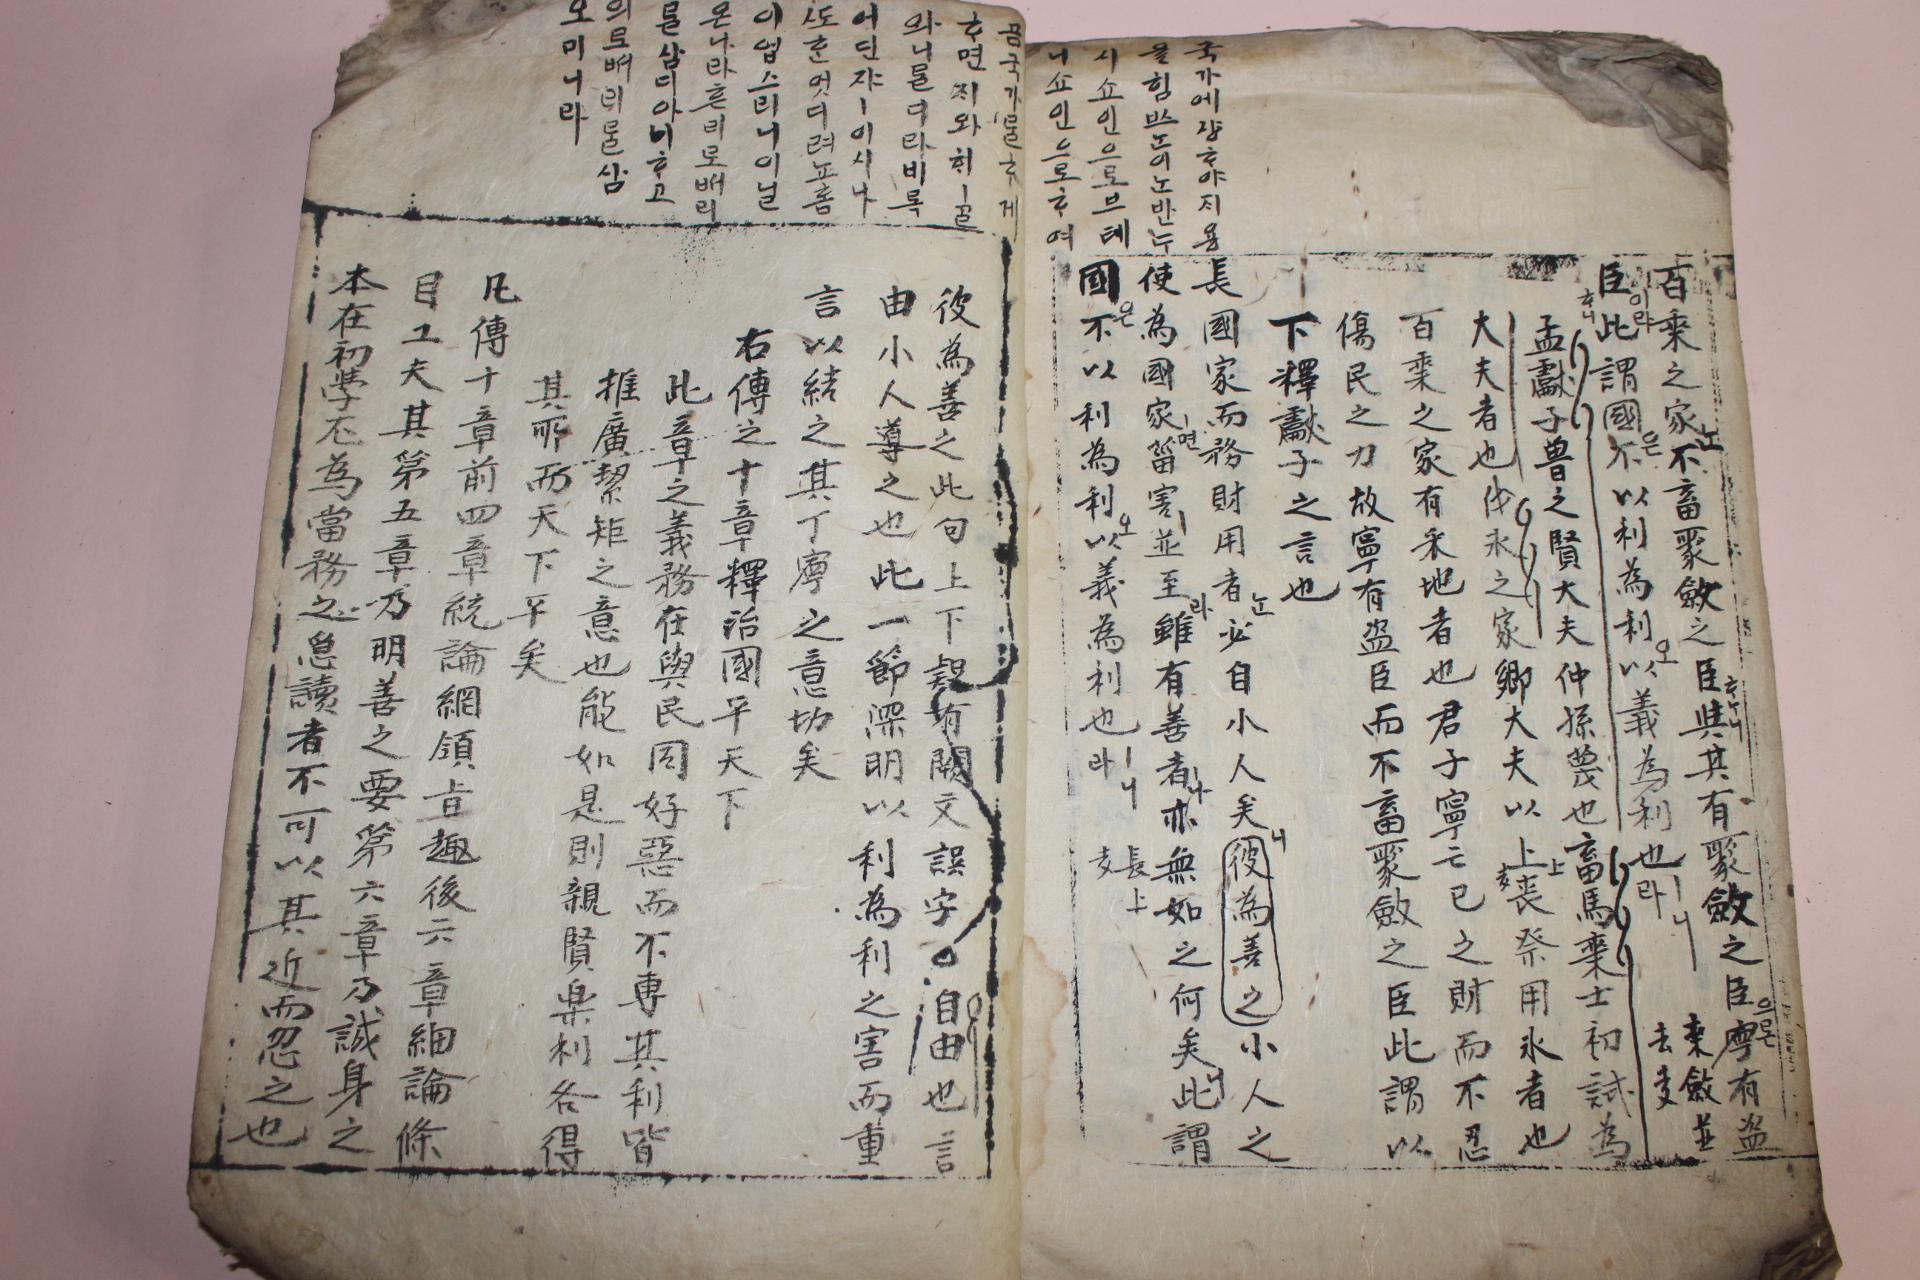 국가에쟝ᄒᆞ야ᄌᆡ용
을힘ᄡᅳᄂᆞᆫ이ᄂᆞᆫ반ᄃᆞ
시쇼인으로브테
니쇼인으로ᄒᆞ여
곰국가ᄅᆞᆯᄒᆞ게
ᄒᆞ면ᄌᆡ와ᄒᆡㅣᄀᆞᆯ
와니를디라비록
어딘쟈ㅣ이시나
ᄯᅩᄒᆞᆫ엇디려뇨홈
이업스리니이닐
온나라흔리로ᄡᅥ리
를삼디아니ᄒᆞ고
의로ᄡᅥ리ᄅᆞᆯ삼
오미니라
百乘之家ᄂᆞᆫ不畜聚斂之臣ᄒᆞᄂᆞ니與其有聚斂之臣으론寧有盜
臣이라ᄒᆞ니此謂國은不以利為利오以義為利也ㅣ라니 乘斂並去支
孟獻子魯之賢大夫仲孫蔑也畜馬乘士初試為
大夫者也伐氷之家卿大夫以上喪祭用氷者也
百乘之家有采地者也君子寧亡己之財而不忍
傷民之力故寧有盜臣而不畜聚斂之臣此謂以
下釋獻子之言也
長國家而務財用者ᄂᆞᆫ必自小人矣니彼為善之小人之
使為國家ㅣ면菑害ㅣ並至라雖有善者ㅣ나亦無如之何矣니此謂
國은不以利為利오以義為利也ㅣ라니 長上支
彼為善之此句上下疑有闕文誤字○自由也言
由小人導之也此一節深明以利為利之害而重
言以結之其丁寧之意切矣
右傳之十章釋治國平天下
此章之義務在與民同好惡而不專其利皆
推廣絜矩之意也能如是則親賢樂利各得
其所而天下平矣
凡傳十章前四章統論綱領旨趣後六章細論條
目工夫其第五章乃明善之要第六章乃誠身之
本在初學尤為當務之急讀者不可以其近而忽之也